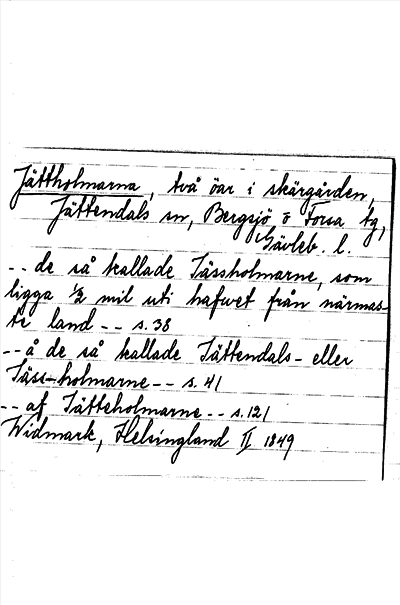 Jättholmarna, två öar i skärgården,
Jättendals sn, Bergsjö o Forsa tg,
Gävleb. l.
-- de så kallade Jässholmarne, som
ligga ½ mil uti hafwet från närmas-
te land -- s. 38
-- å de så kallade Jättendals- eller
Jäss-holmarne -- s. 41
-- af Jätteholmarne -- s. 121
Widmark, Helsingland II 1849